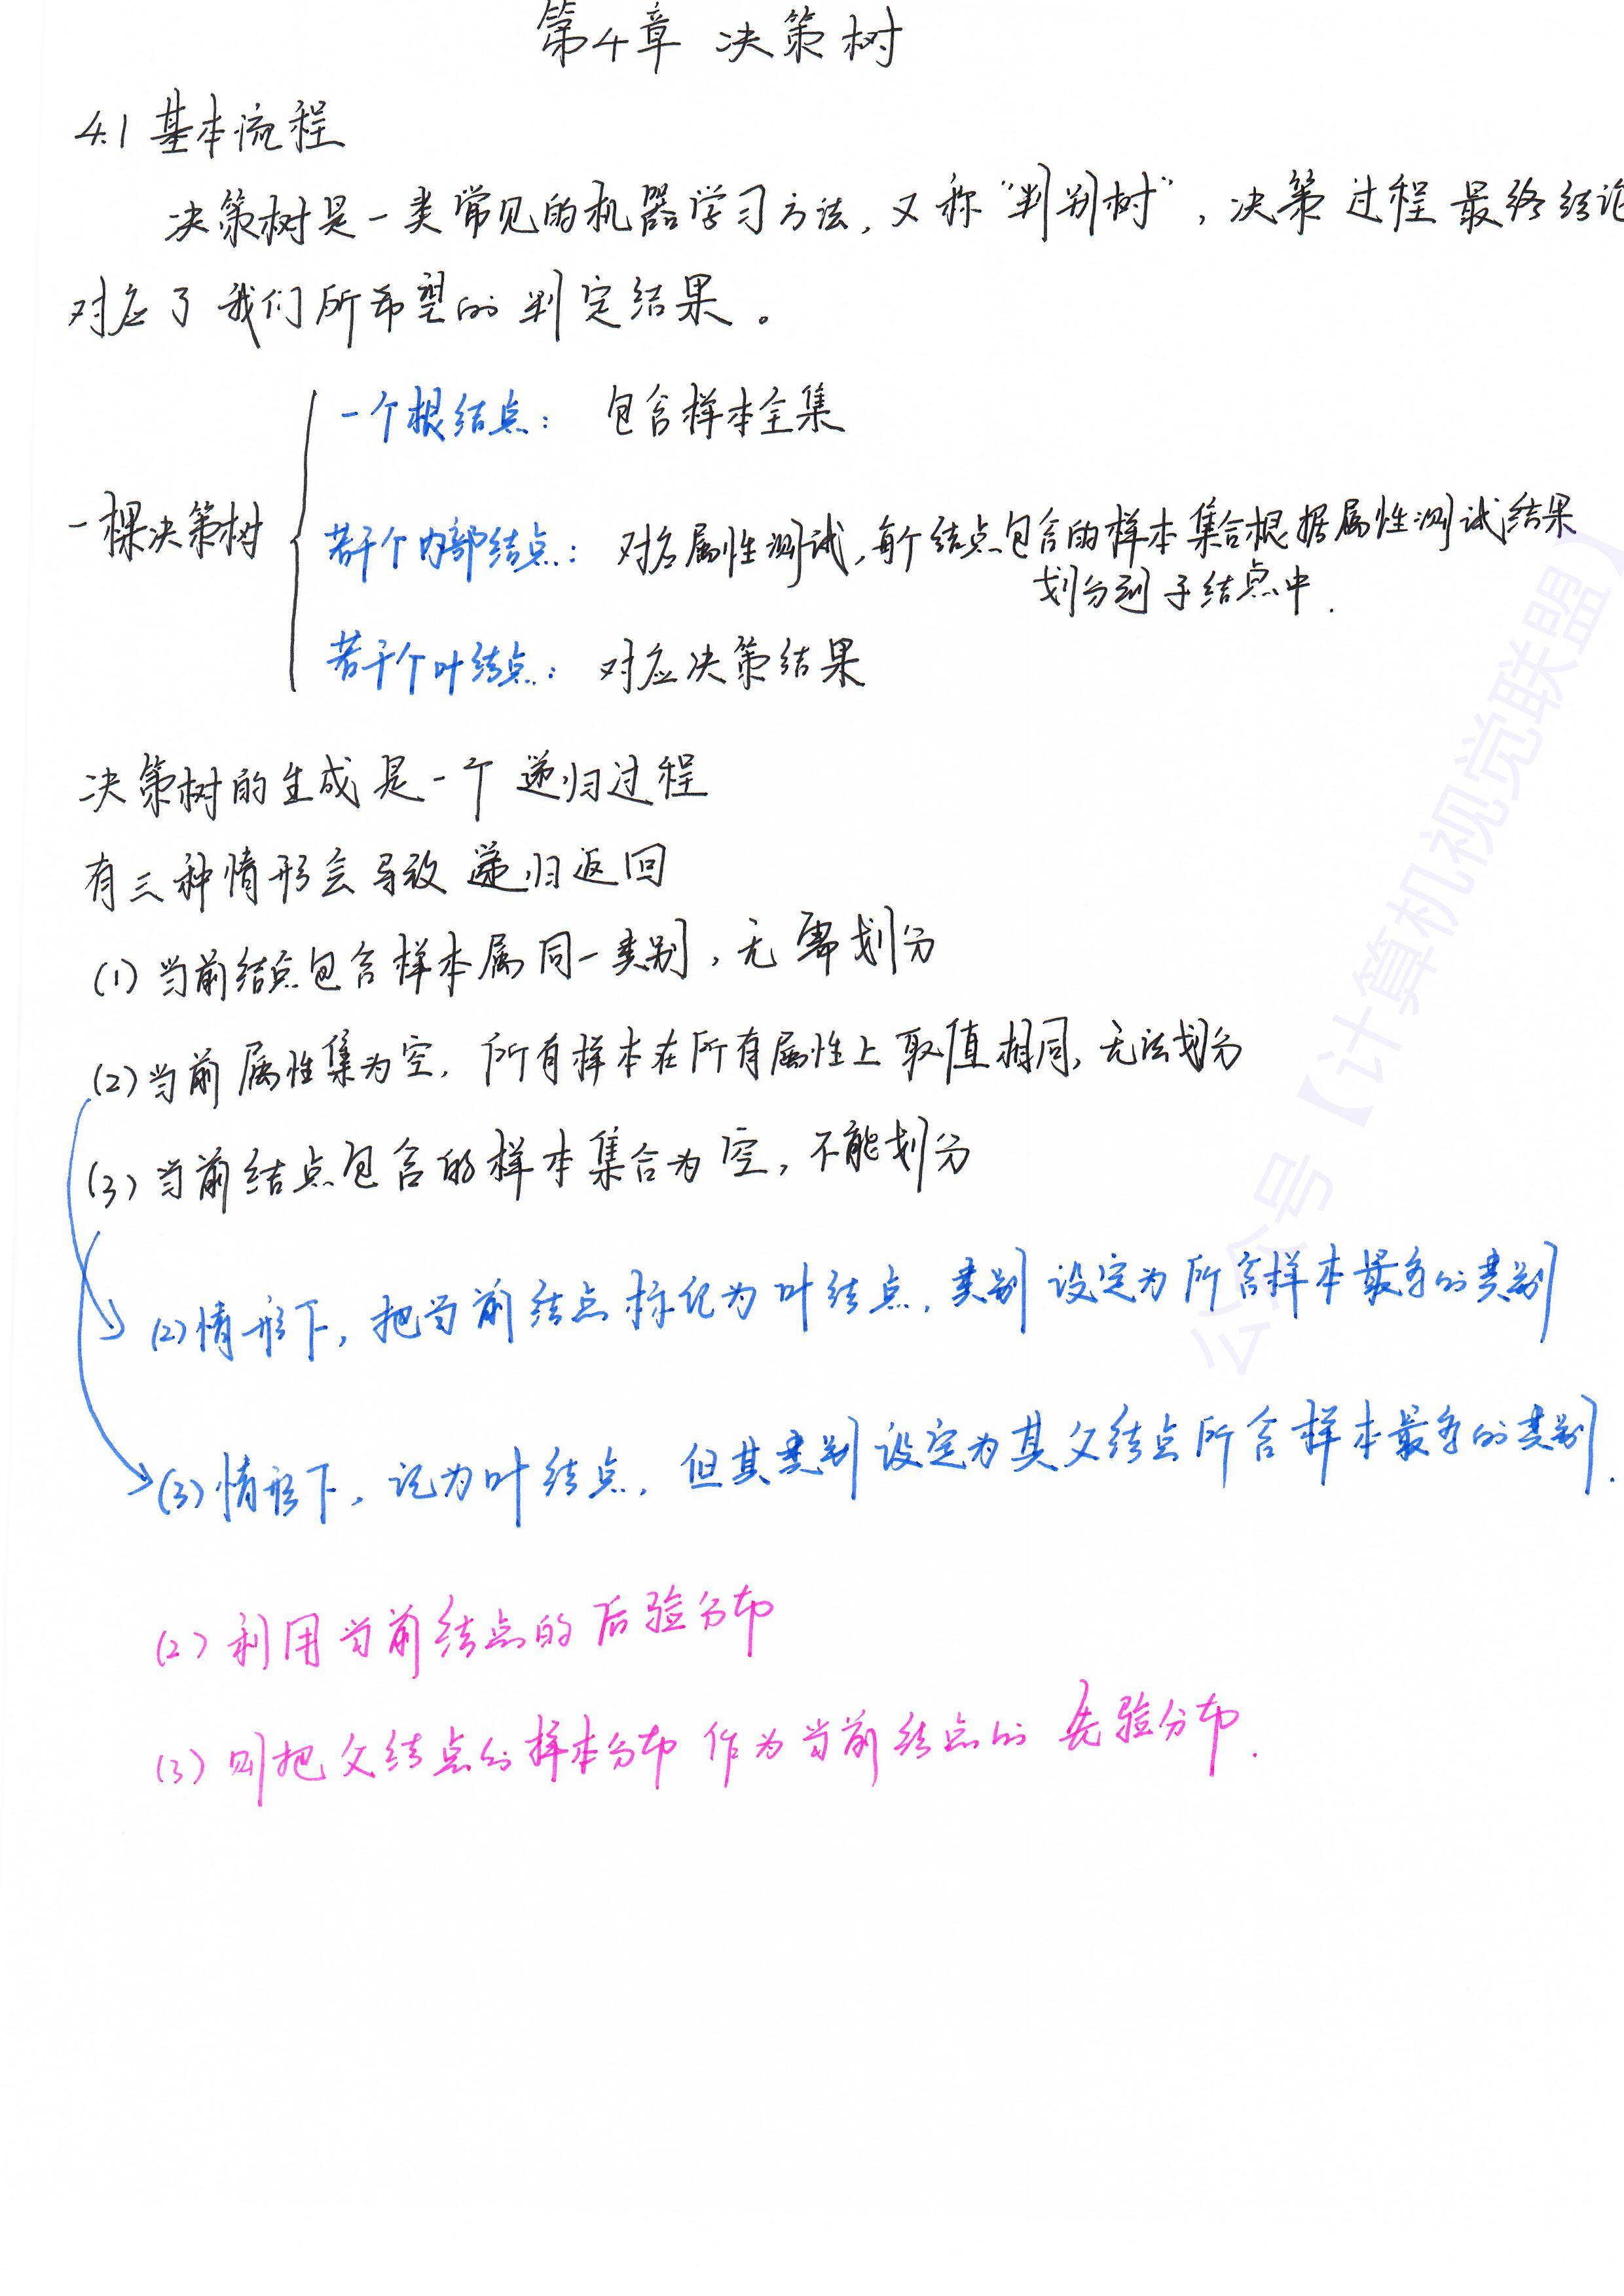 第4章 决策树
4.1 基本流程
决策树是一类常见的机器学习方法，又称“判别树”，决策过程最终结论
对应了我们所希望的判定结果。
一个根结点： 包含样本全集
一棵决策树
若干个内部结点： 对应属性测试，每个结点包含的样本集合根据属性测试结果
划分到子结点中.
若干个叶结点： 对应决策结果
决策树的生成是一个递归过程
有三种情形会导致递归返回
(1) 当前结点包含样本属同一类别，无需划分
(2) 当前属性集为空，所有样本在所有属性上取值相同，无法划分
(3) 当前结点包含的样本集合为空，不能划分
(2) 情形下，把当前结点标记为叶结点，类别设定为所含样本最多的类别
(3) 情形下，记为叶结点，但其类别设定为其父结点所含样本最多的类别.
(2) 利用当前结点的后验分布
(3) 则把父结点的样本分布作为当前结点的先验分布.
公众号【计算机视觉联盟】